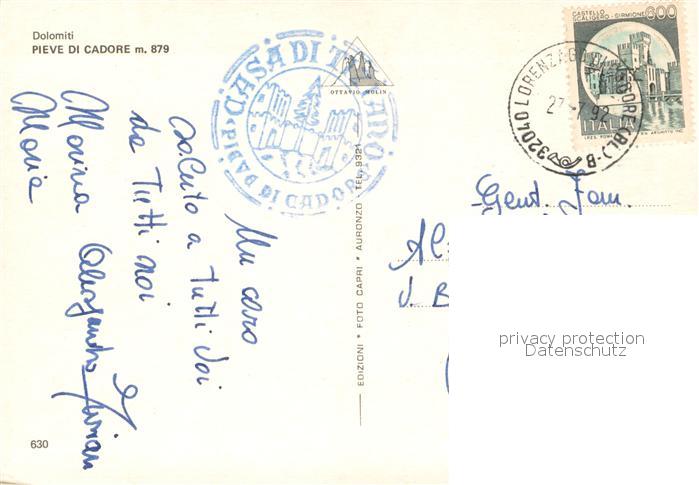 Dolomiti
PIEVE DI CADORE m. 879
CASA DI TIZIANO
PIEVE DI CADORE
OTTAVIO MOLIN
CASTELLO
SCALIGERO - SIRMIONE
600
ITALIA
32040 LORENZAGO DI CADORE (BL) - B
27.7.92
Un caro
saluto a Tutti Voi
da Tutti noi
Marina
Maria
Gent. Fam.
EDIZIONI * FOTO CAPRI * AURONZO TEL. 9321
630
privacy protection
Datenschutz